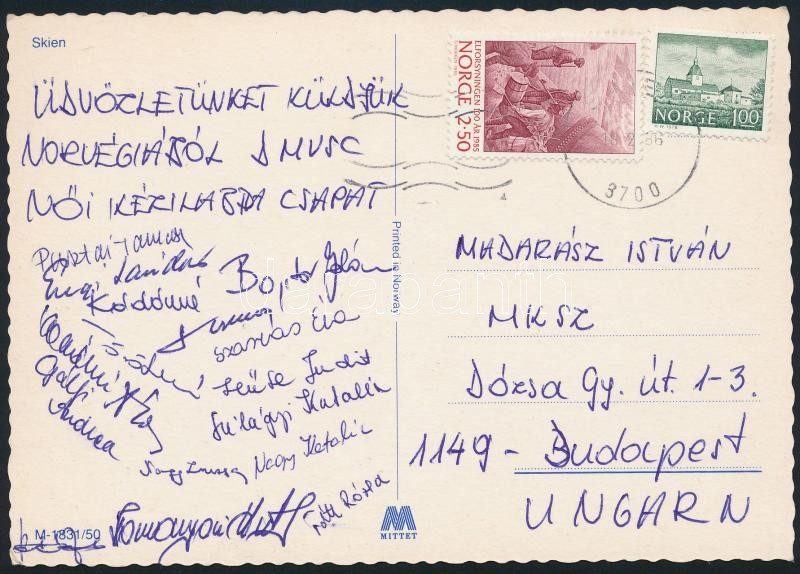 Skien
ÜDVÖZLETÜNKET KÜLDJÜK
NORVÉGIÁBÓL A MVSC
NŐI KÉZILABDA CSAPAT
Pusztai
Bojtor
Kádárné
Szarvas Éva
Judit
Gálfi
Szilágyi Katalin
Andrea
Nagy Katalin
Tóth Rózsa
M-1831/50
Printed in Norway
MITTET
ELFORSYNINGEN 100 ÅR 1985
NORGE 2·50
NORGE 1.00
3700
MADARÁSZ ISTVÁN
MKSZ
Dózsa Gy. út. 1-3.
1149 - Budapest
UNGARN
darabanth